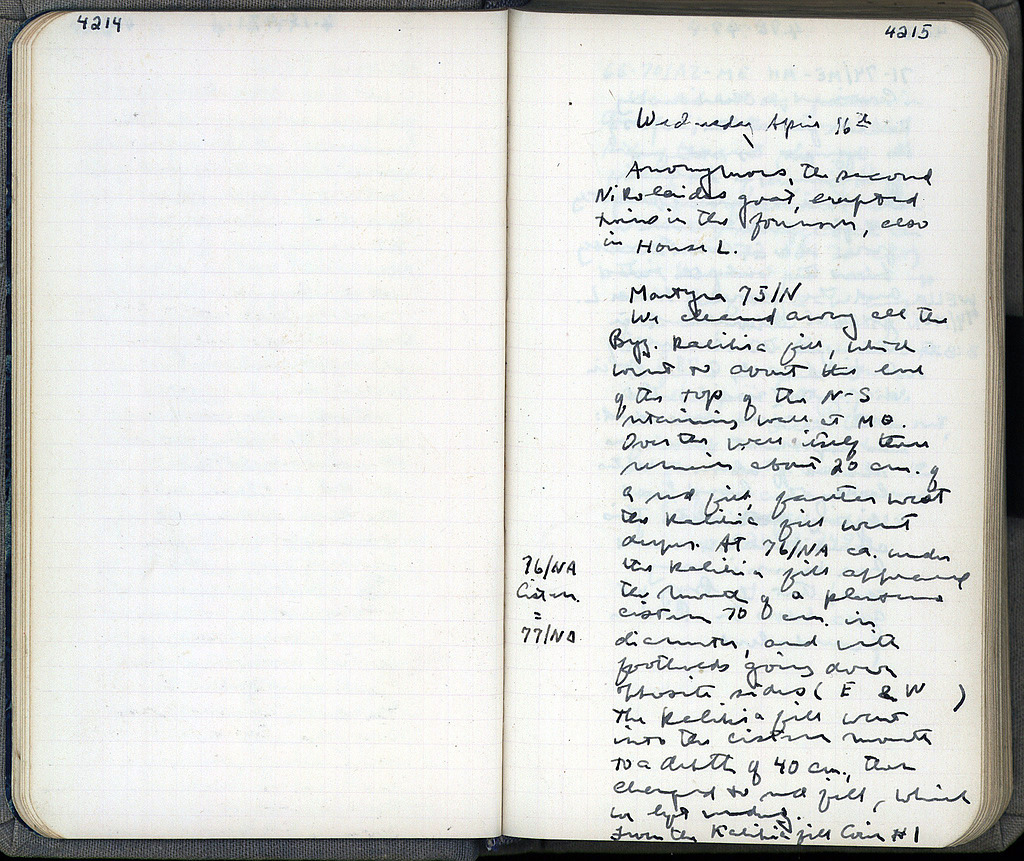 4214
4215
Wednesday April 16th
Anonymous, the second
Nikolaides goat, erupted
twins in the forenoon, also
in House L.
Martyra 75/N
We cleaned away all the
Byz. Kalikia fill, which
went to about the level
of the top of the N-S
retaining wall at MΘ.
Over the wall itself there
remains about 20 cm. of
a red fill, farther west
the Kalikia fill went
deeper. At 76/NA ca. under
the Kalikia fill appeared
the mouth of a plastered
cistern 70 cm. in
diameter, and with
footholds going down
opposite sides (E & W )
The Kalikia fill went
into the cistern mouth
to a depth of 40 cm., then
changed to red fill, which
we left undug.
From the Kalikia fill Coin #1
76/NA
Cistern
=
77/NA